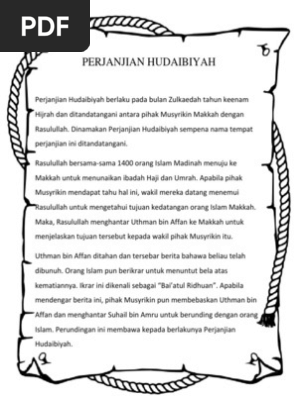 PDF
PERJANJIAN HUDAIBIYAH
Perjanjian Hudaibiyah berlaku pada bulan Zulkaedah tahun keenam
Hijrah dan ditandatangani antara pihak Musyrikin Makkah dengan
Rasulullah. Dinamakan Perjanjian Hudaibiyah sempena nama tempat
perjanjian ini ditandatangani.
Rasulullah bersama-sama 1400 orang Islam Madinah menuju ke
Makkah untuk menunaikan ibadah Haji dan Umrah. Apabila pihak
Musyrikin mendapat tahu hal ini, wakil mereka datang menemui
Rasulullah untuk mengetahui tujuan kedatangan orang Islam Makkah.
Maka, Rasulullah menghantar Uthman bin Affan ke Makkah untuk
menjelaskan tujuan tersebut kepada wakil pihak Musyrikin itu.
Uthman bin Affan ditahan dan tersebar berita bahawa beliau telah
dibunuh. Orang Islam pun berikrar untuk menuntut bela atas
kematiannya. Ikrar ini dikenali sebagai "Bai'atul Ridhuan". Apabila
mendengar berita ini, pihak Musyrikin pun membebaskan Uthman bin
Affan dan menghantar Suhail bin Amru untuk berunding dengan orang
Islam. Perundingan ini membawa kepada berlakunya Perjanjian
Hudaibiyah.